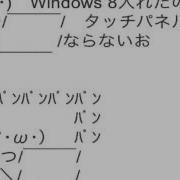 ･) Windows 8入れたの
/￣￣￣￣/ タッチパネル
＿＿＿＿ /ならないお
ﾊﾟﾝﾊﾟﾝﾊﾟﾝﾊﾟﾝ
ﾊﾟﾝ
･ω･) ﾊﾟﾝ
つ/￣￣￣￣/
＼/ /